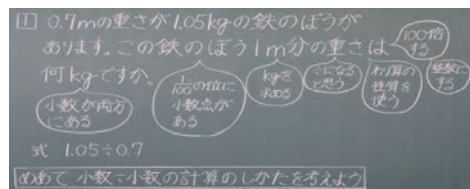 1 0.7mの重さが1.05kgの鉄のぼうが
あります。この鉄のぼう1m分の重さは
何kgですか。
100倍
する
小数が両方
にある
1/100の位に
小数点が
ある
kgを
求める
わり算の
性質を
使う
整数に
する
式 1.05÷0.7
めあて 小数÷小数の計算のしかたを考えよう